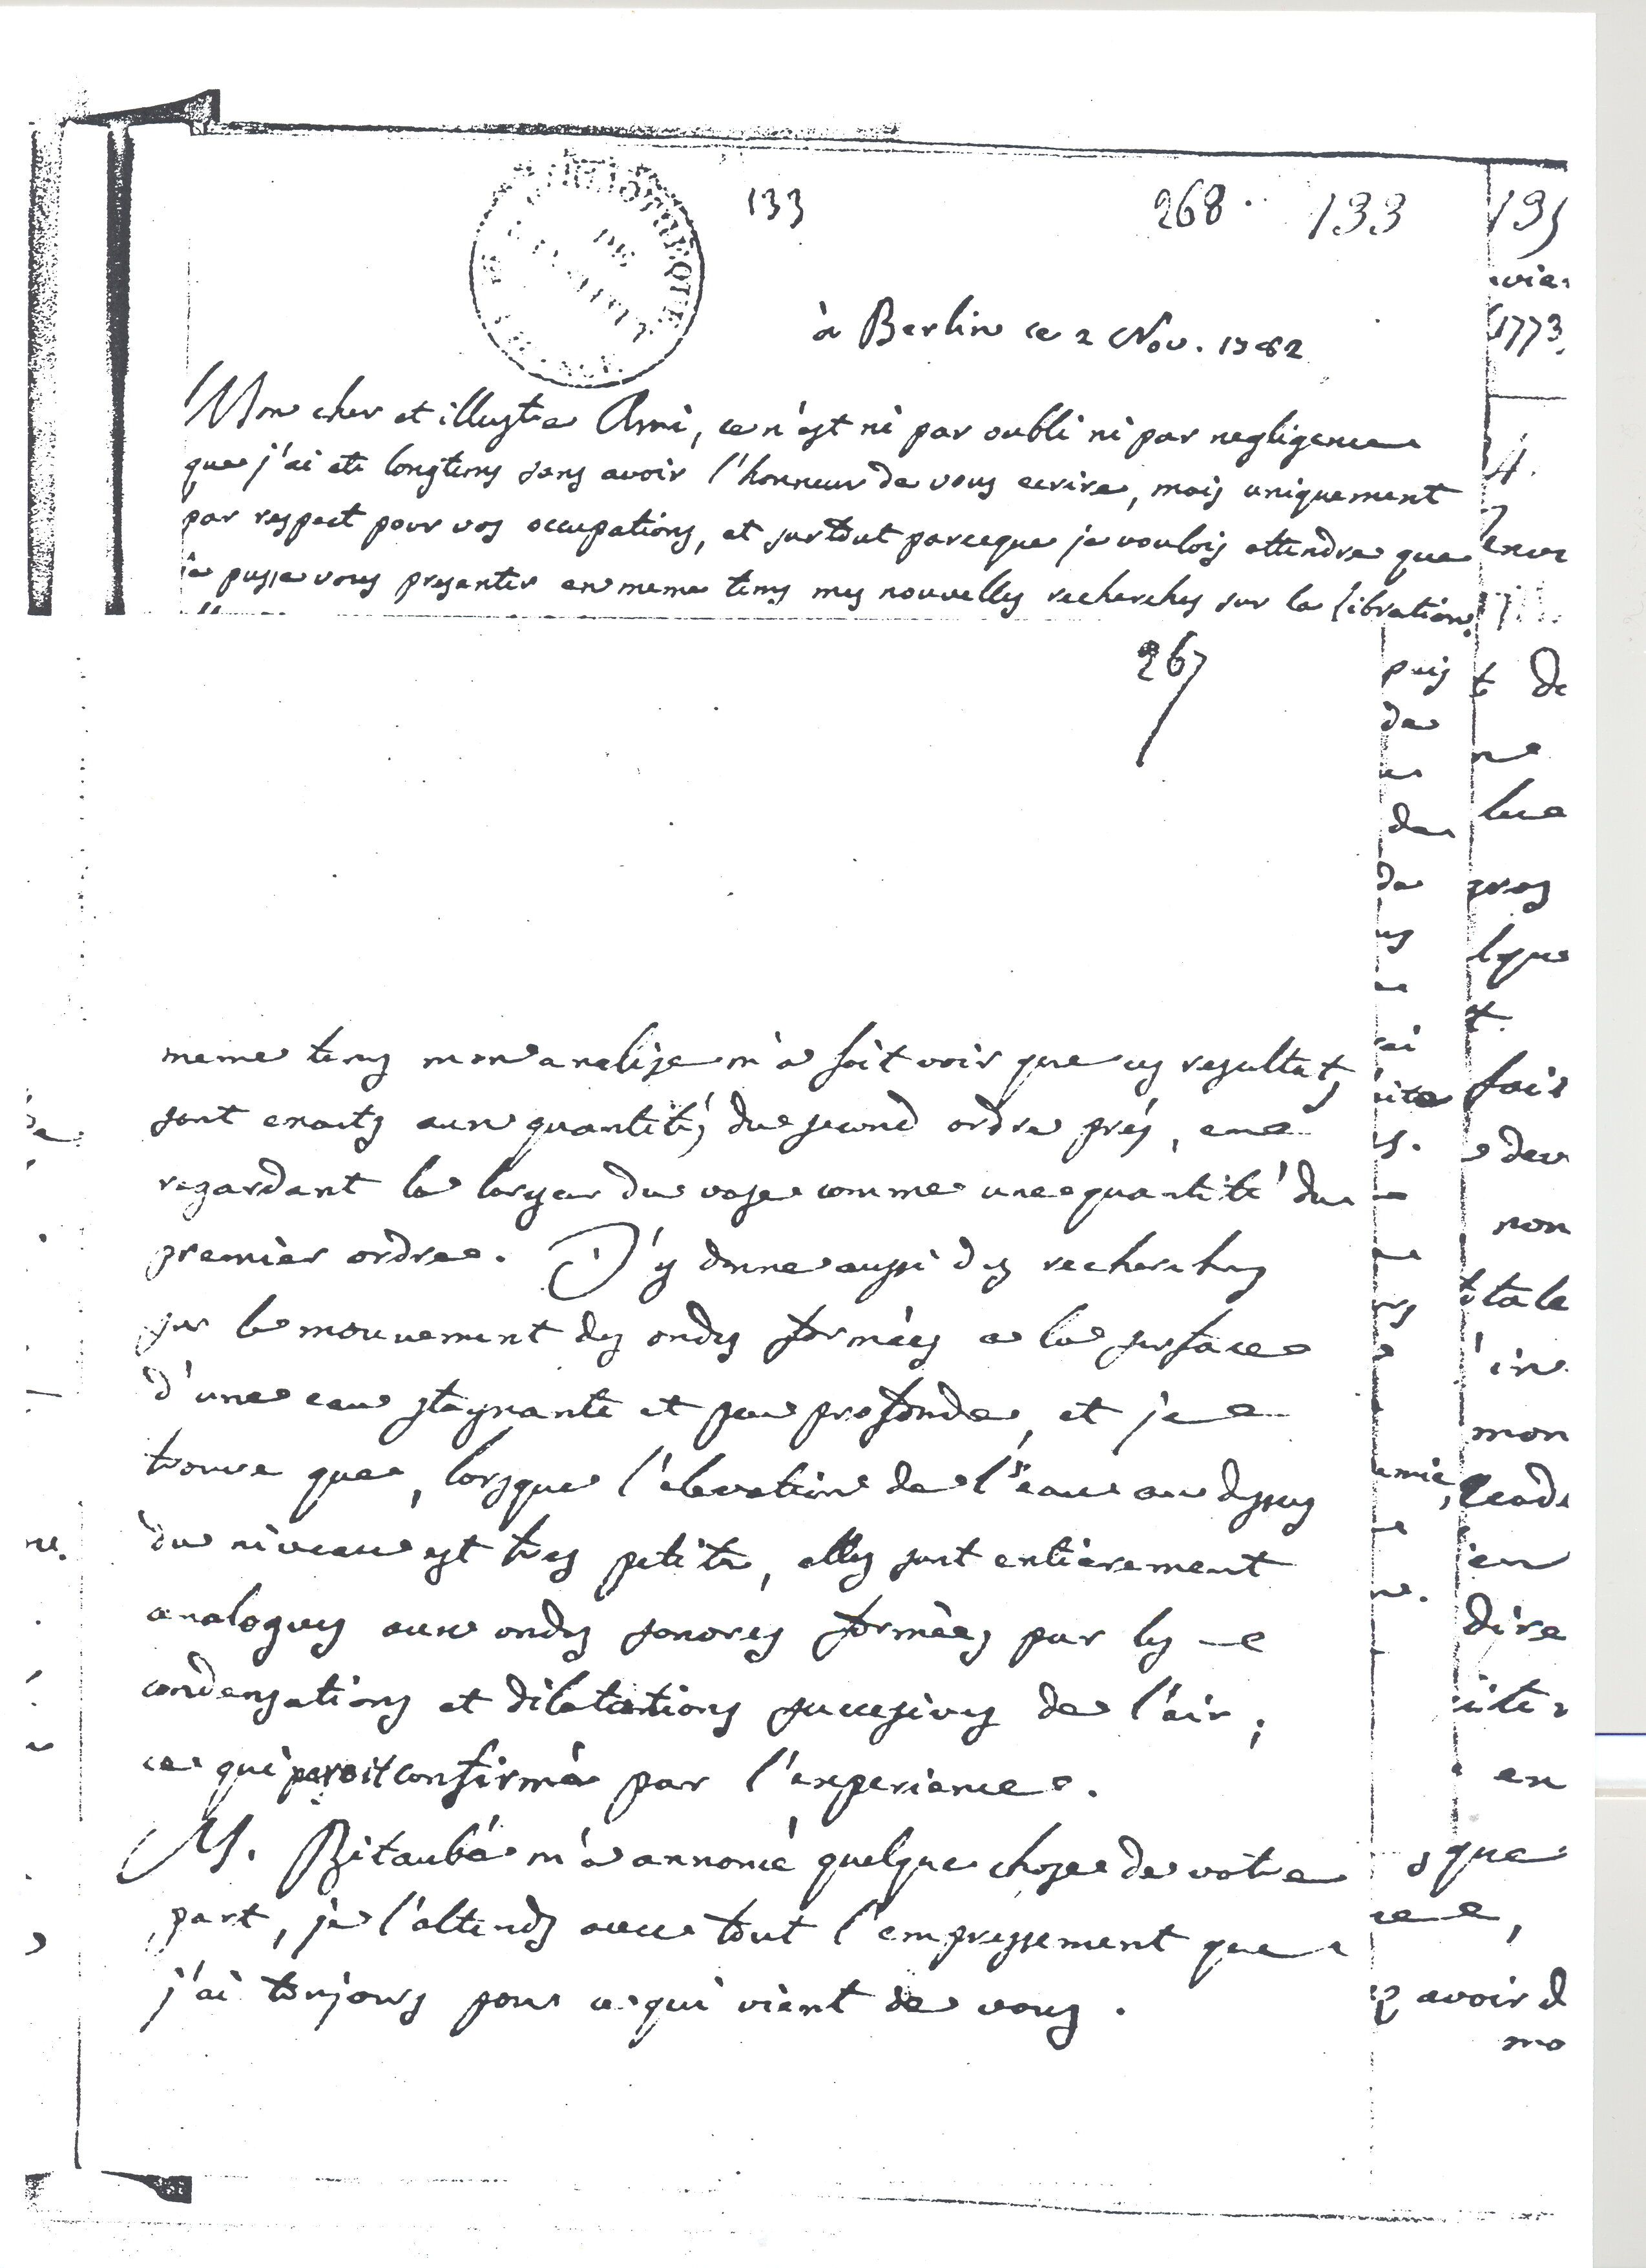 133 268 133 135
à Berlin ce 2 Nov. 1782
1773.
Mon cher et illustre Ami, ce n'est ni par oubli ni par negligence
que j'ai eté longtems sans avoir l'honneur de vous ecrire, mais uniquement
par respect pour vos occupations, et surtout parceque je voulois attendre que
je pusse vous presenter en meme tems mes nouvelles recherches sur la libration
267
puis
de
de
de
meme tems mon analise m'a fait voir que ces resultats
sont exacts aux quantités du second ordre près, en
regardant la largeur du vase comme une quantité du
premier ordre. J'y donne aussi des recherches
sur le mouvement des ondes formées a la surface
d'une eau stagnante et peu profonde, et je
trouve que, lorsque l'elevation de l'eau au dessus
du niveau est tres petite, elles sont entierement
analogues aux ondes sonores formées par les
condensations et dilatations successives de l'air;
ce qui paroit confirmé par l'experience.
M. Bitaubé m'a annoncé quelque chose de votre
part, je l'attends avec tout l'empressement que
j'ai toujours pour ce qui vient de vous.
fais
non
mon
dire
en
que
avoir d